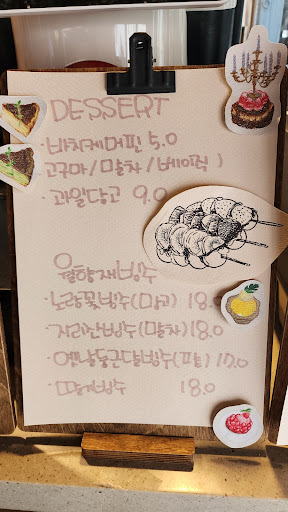 DESSERT
·바치케머핀 5.0
고구마/말차/베이직)
·과일당고 9.0
월향재빙수
·노랑꽃빙수(망고) 18.0
·지리산빙수(말차) 18.0
·옛날둥근달빙수(팥) 17.0
·딸기빙수 18.0